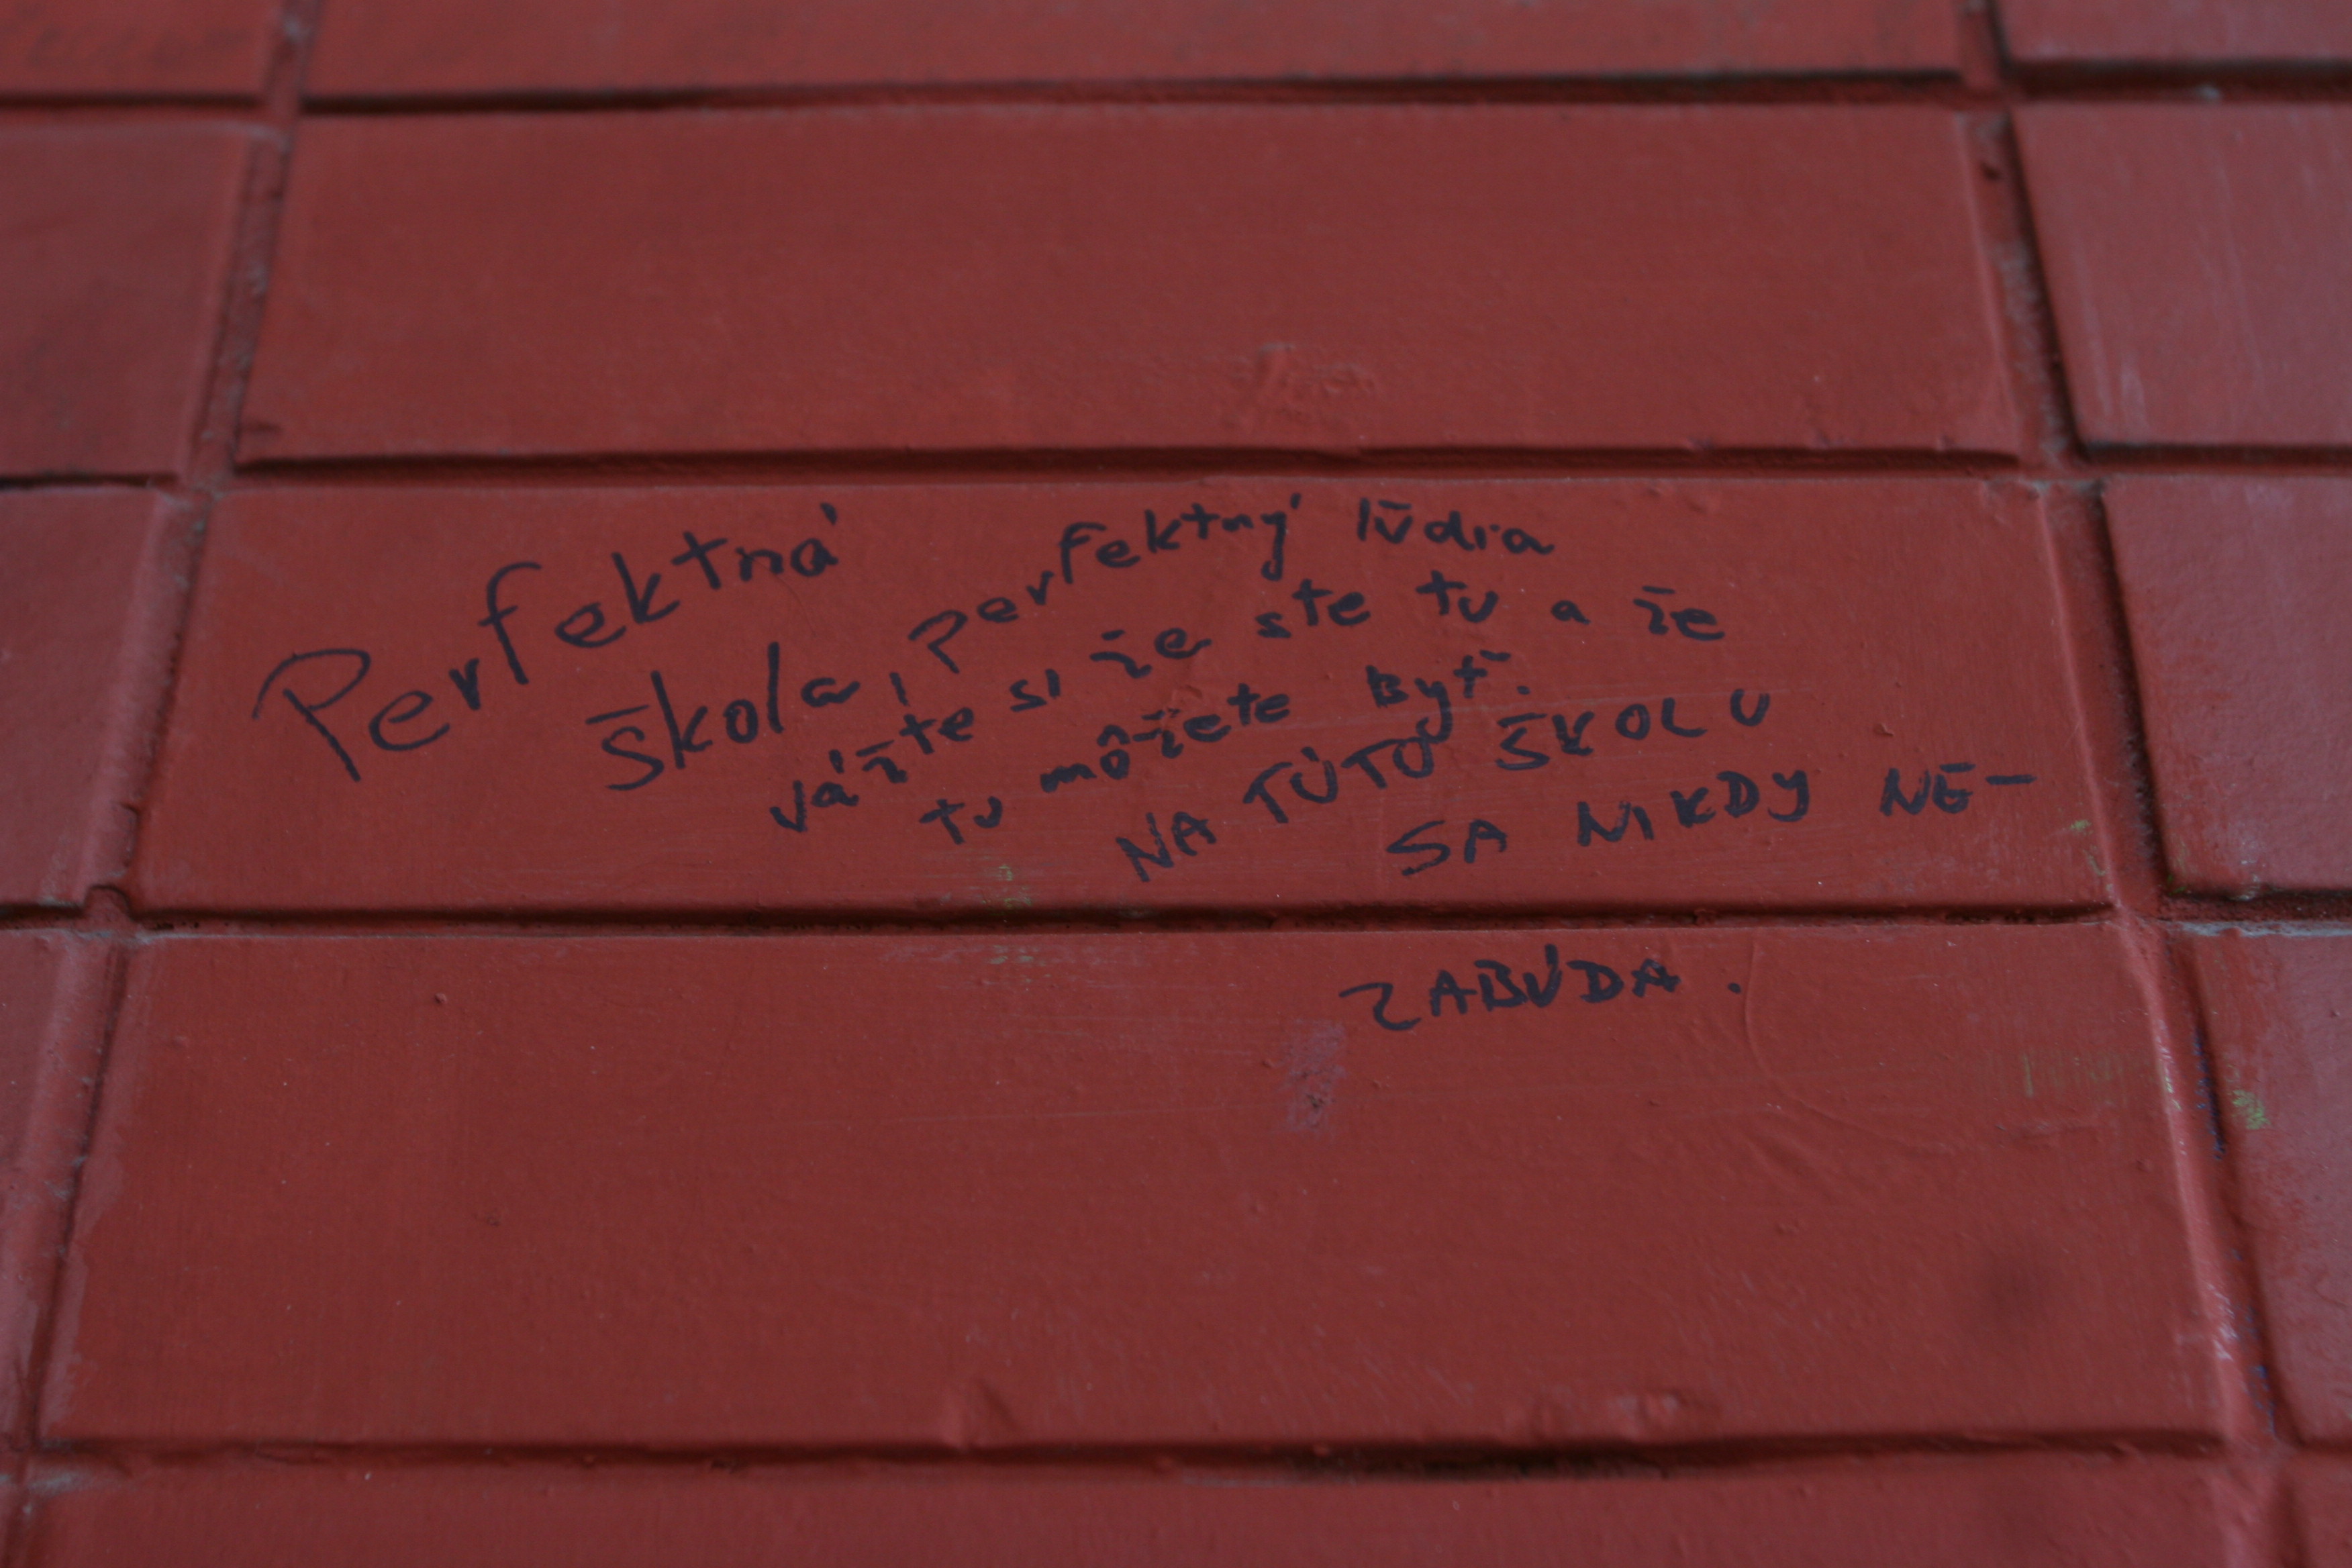 Perfektná
škola, perfektný lūdia
vážte si že ste tu a že
tu môžete byť.
NA TÚTO ŠKOLU
SA NIKDY NE-
ZABÚDA.